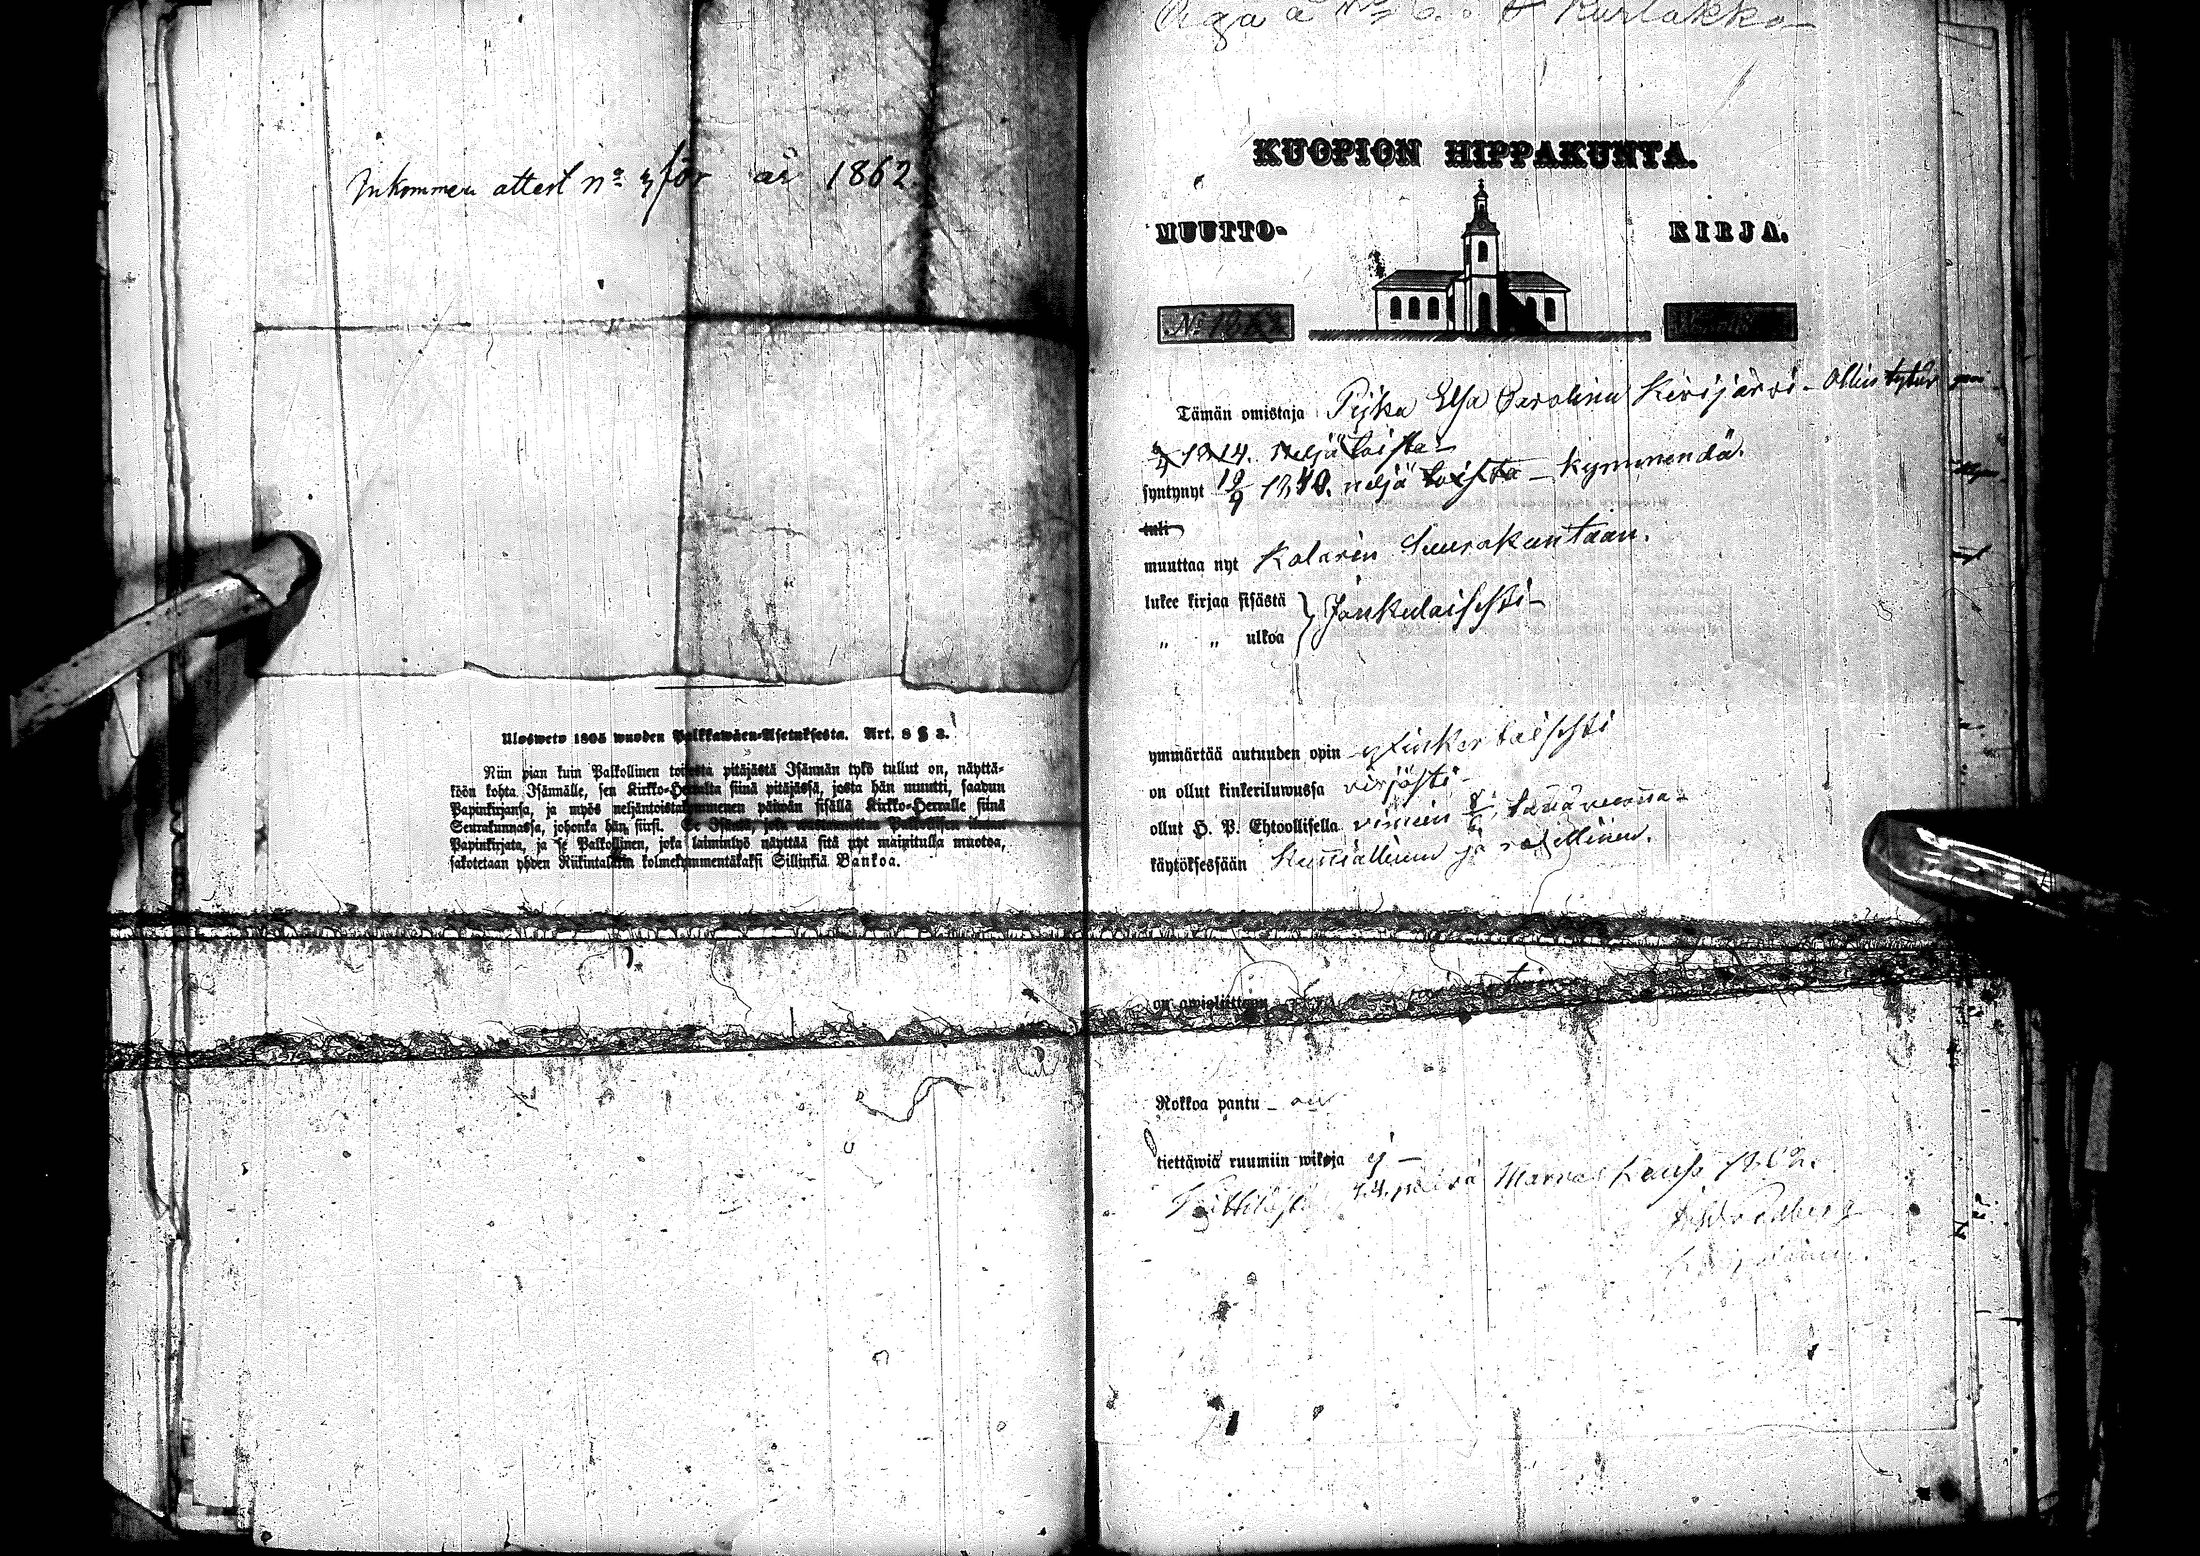 Inkommen attest no 3 för år 1862.
Ulosweto 1805 wuoden Palkkawäen-Asetuksesta. Art. 8 § 3.
Niin pian kuin Palkollinen toisesta pitäjästä Isännän tykö tullut on, näyttä-
köön kohta Isännälle, sen Kirkko-Herralta siinä pitäjässä, josta hän muutti, saadun
Papinkirjansa, ja myös neljäntoistakymmenen päiwän sisällä Kirkko-Herralle siinä
Seurakunnassa, johonka hän siirsi. Se Isäntä, joka Palkollisen ilman
Papinkirjata, ja se Palkollinen, joka laiminlyö näyttää sitä nyt mainitulla muotoa,
sakotetaan yhden Riikintalarin kolmekymmentäkaksi Sillinkiä Bankoa.
Kurtakko
KUOPION HIPPAKUNTA.
MUUTTO- KIRJA.
No
Tämän omistaja Pijka Elsa Carolina Kivijärvi - Ollin tytär
1814. Neljätoista -
syntynyt 19/9 1840. neljä toista - kymmendä.
tuli
muuttaa nyt Kolarin Seurakuntaan.
lukee kirjaa sisästä
„ „ ulkoa } Jonkulaisesti -
ymmärtää autuuden opin yxinkertaisesti
on ollut kinkeriluwussa
ollut H. P. Ehtoollisella viimein tänä vuonna -
käytöksessään Kunniallinen ja
on awioliittoon
Rokkoa pantu - on
tiettäwiä ruumiin wikoja ej -
Kittilästä 14. päivä Marras kuusa 1862.